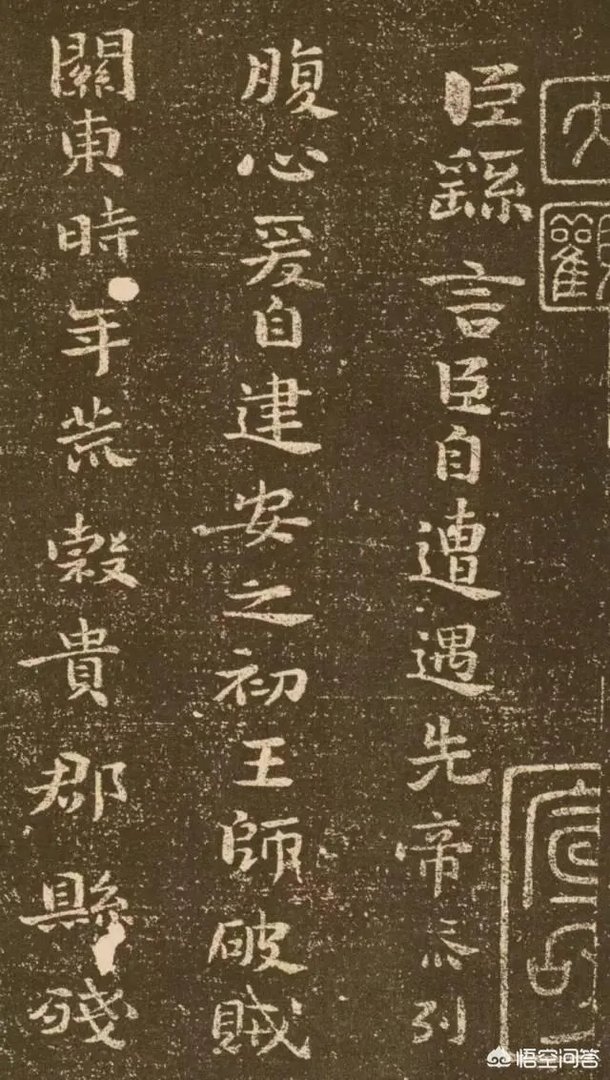 大觀
臣繇言臣自遭遇先帝忝列
腹心爰自建安之初王師破賊
關東時年荒穀貴郡縣殘
悟空问答